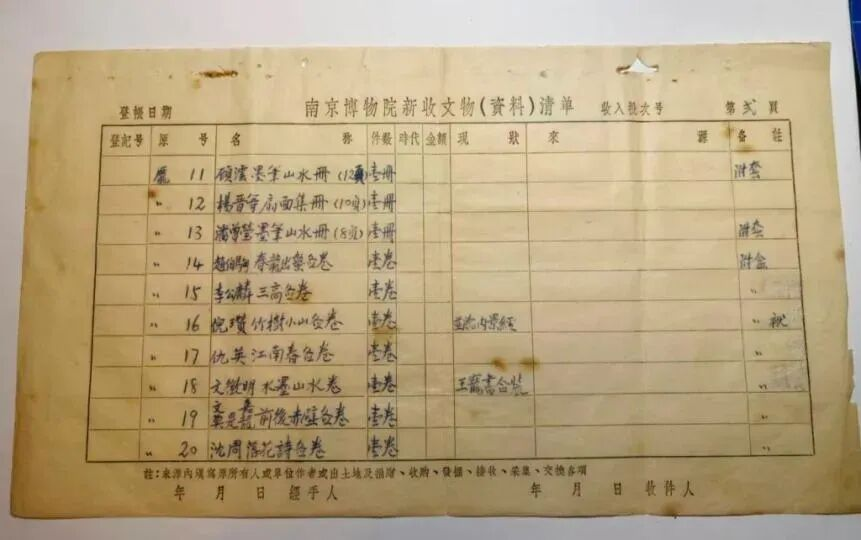 南京博物院新收文物(資料)清单
登帳日期 收入批次号 第貳頁
登記号 原号 名称 件数 時代 金額 現狀 來源 备註
龐 11 顾澐墨笔山水册(12頁) 壹册 附套
〃 12 楊晋等扇面集册(10页) 壹册
〃 13 潘曾瑩墨笔山水册(8页) 壹册 附套
〃 14 趙伯駒春龍出蟄图卷 壹卷 附盒
〃 15 李公麟三高图卷 壹卷 〃
〃 16 倪瓒竹樹小山图卷 壹卷 〃
〃 17 仇英江南春图卷 壹卷 〃
〃 18 文徵明水墨山水卷 壹卷 王寵書合裝 〃
〃 19 前後赤壁图卷 壹卷 〃
〃 20 沈周落花詩图卷 壹卷 〃
註:來源內填寫原所有人或單位作者或出土地及捐贈、收购、發掘、接收、采集、交換各項
年 月 日 經手人 年 月 日 收件人